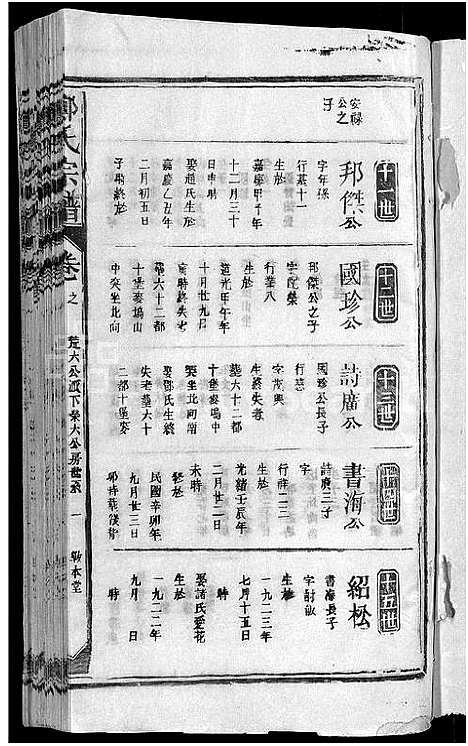 安祿
公之
子
十一世
邦傑公
字年孫
行慕十一
生於
嘉慶甲子年
十二月三十
日申時
娶趙氏生於
嘉慶乙丑年
二月初五日
子時終於
十二世
國珍公
邦傑公之子
行業八
生於
道光甲午年
十月廿九日
亥時終失考
墓六十二都
十堡麥塢山
中央坐北向
十三世
詩廣公
國珍公長子
字期興
行懋
生終失考
墓六十二都
十堡麥塢中
娶鄧氏生終
失考墓六十
二都十堡麥
十四世
書海公
詩廣三子
字
行祥二三
生於
光緒壬辰年
二月廿二日
未時
終於
民國辛卯年
九月廿三日
卯時墓後背
十五世
紹松
書海長子
生於
一九二三年
七月十五日
時
娶諸氏愛花
生於
一九二二年
九月 日
時
氏宗譜
卷之
六公房世系
一